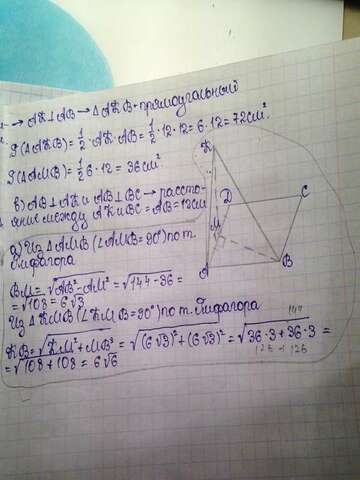 → AK⊥AB → ΔAKB - прямоугольный
S(ΔAKB) = 1/2 · AK · AB = 1/2 · 12 · 12 = 6 · 12 = 72 см².
S(ΔAMB) = 1/2 6 · 12 = 36 см².
в) AB⊥AK и AB⊥BC → рассто-
яние между AK и BC = AB = 12 см
а) Из ΔAMB (∠AMB = 90°) по т.
Пифагора
BM = √AB² - AM² = √144 - 36 =
= √108 = 6√3
Из ΔKMB (∠KMB = 90°) по т. Пифагора
KB = √KM² + MB² = √(6√3)² + (6√3)² = √36·3 + 36·3 =
= √108 + 108 = 6√6
K
D
C
M
A
B